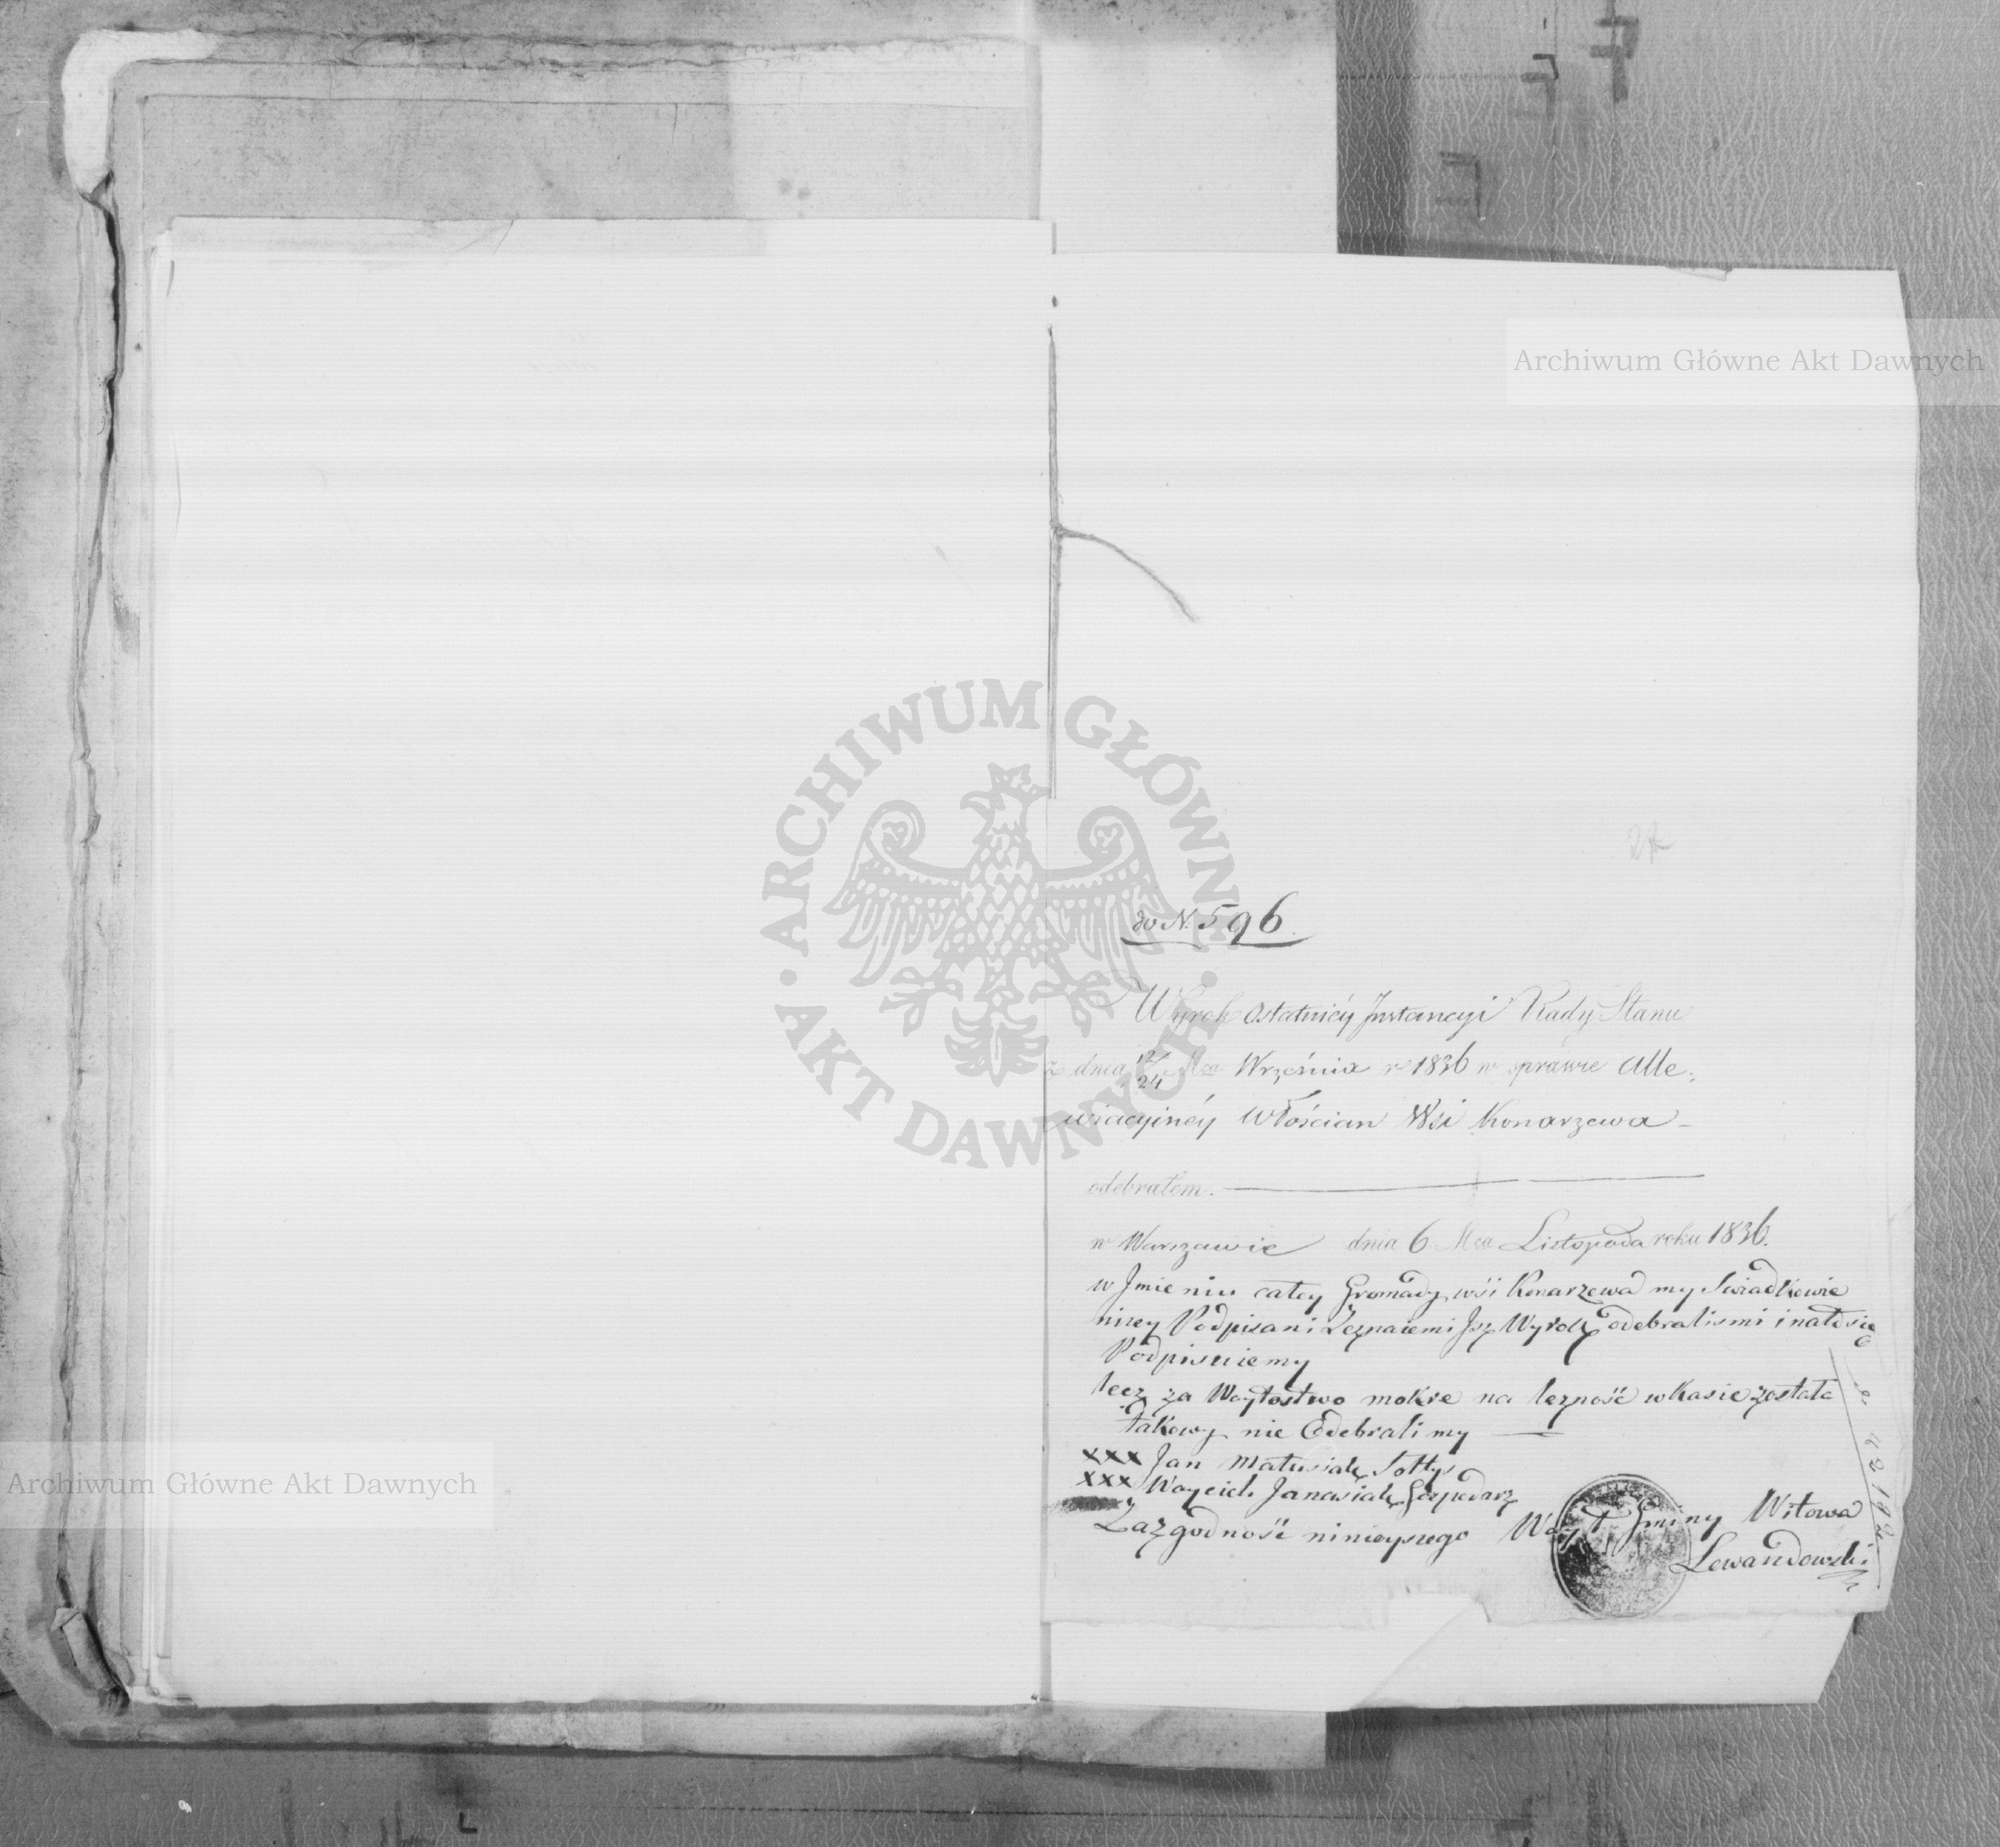 Archiwum Główne Akt Dawnych
ARCHIWUM GŁÓWNE AKT DAWNYCH
do N. 596.
Wyrok Ostatniéy Jnstancyi Rady Stanu
z dnia 12/24 Mca Września r 1836 w sprawie Alle:
wiacyinéy Włościan Wsi Konarzewa
odebrałem.
w Warszawie dnia 6 Mca Listopada roku 1836.
w Jmieniu całey Gromady wśi Konarzewa my Swiadkowie
nizey Podpisani Zeznaiemi Jsz Wyrok odebralismi i nato sie
Podpisuiemy
lecz za Woytostwo mokre na lezność w Kasie została
takowy nie Odebralimy
xxx Jan Matusiak Sołtys
xxx Woyciech Janasiak Gospodarz
Zazgodność ninieyszego Woyt Gminy Witowa
Lewandowski
Archiwum Główne Akt Dawnych